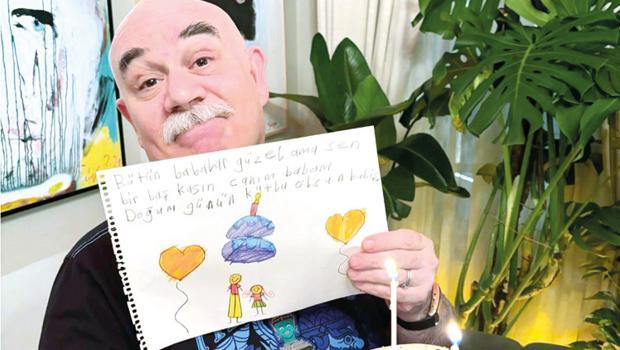 Bütün babalar güzel ama sen
bir baş kasın canım babam
Doğum günün kutlu olsun